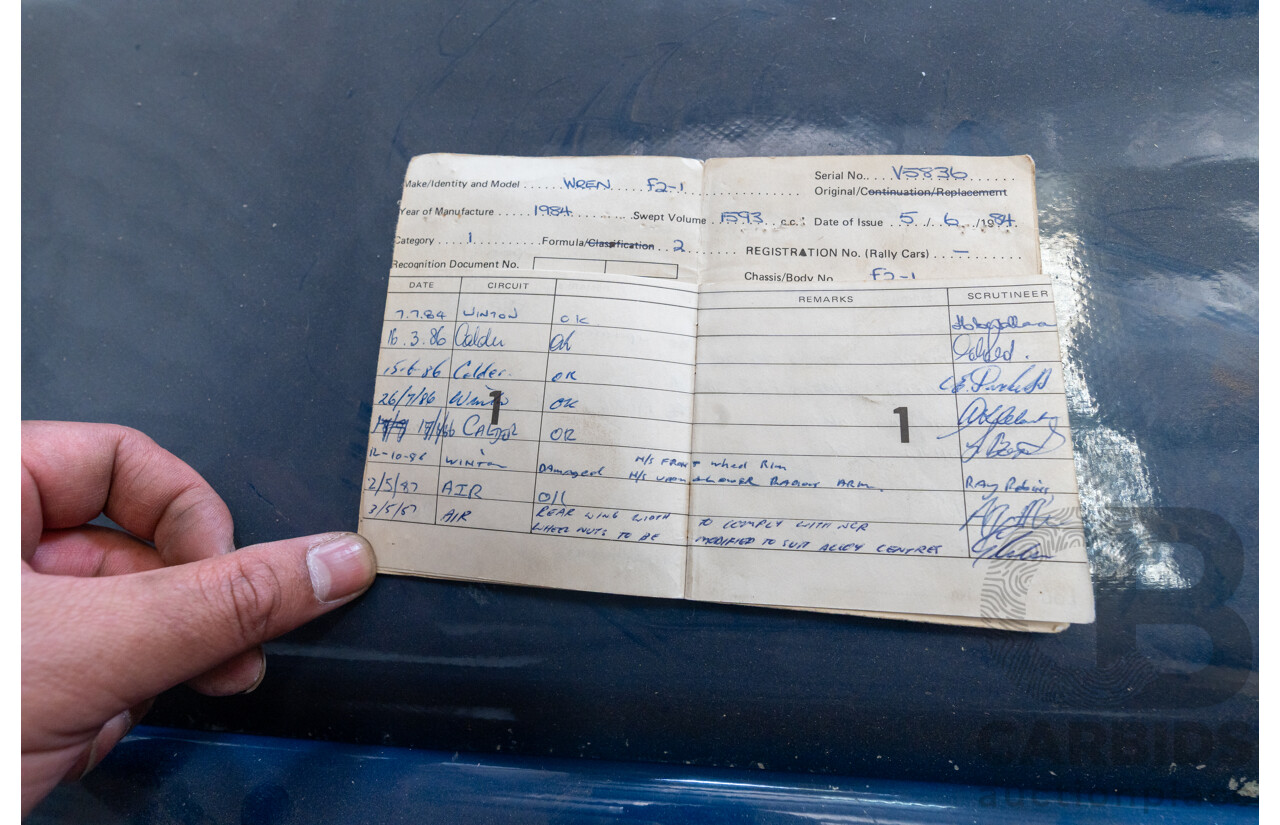 Make/Identity and Model ..... WREN .... F2-1 ............
Serial No.. .. V5836 ......
Original/Continuation/Replacement
Year of Manufacture ..... 1984 ......... Swept Volume . 1593 .. c.c.: Date of Issue . 5 ./. 6 ../19 84.
Category .... 1 ........... Formula/Classification .. 2 ........ REGISTRATION No. (Rally Cars) .. — .......
Recognition Document No.
Chassis/Body No F2-1
DATE CIRCUIT REMARKS SCRUTINEER
7.7.84 WINTON OK
16.3.86 Calder OK
15-6-86 Calder. OK
26/7/86 Winton OK
1 1
CALDER OK
12-10-86 WINTON DAMAGED N/S FRONT Wheel Rim
N/S UPPER & LOWER RADIUS ARM.
2/5/87 AIR OK
3/5/87 AIR REAR WING WIDTH TO COMPLY WITH NCR
WHEEL NUTS TO BE MODIFIED TO SUIT ALLOY CENTRES
CARBIDS